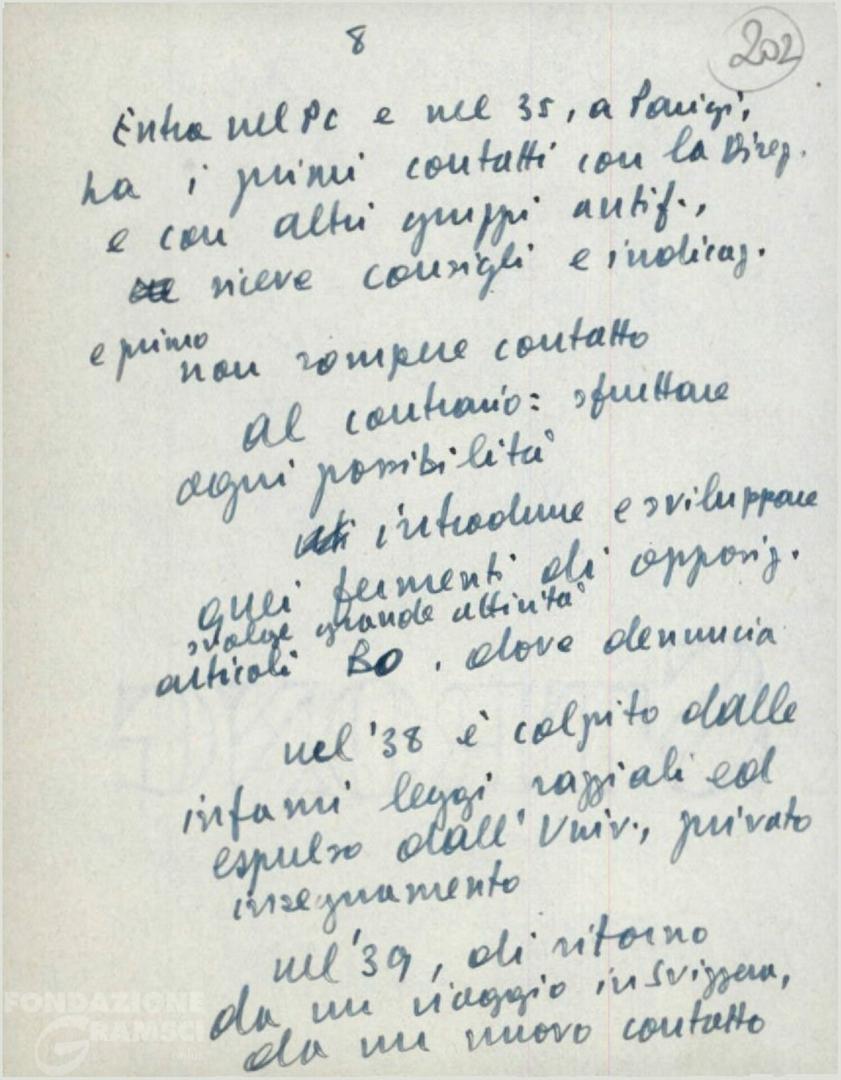 8
202
Entra nel PC e nel 35, a Parigi,
ha i primi contatti con la Direz.
e con altri gruppi antif.,
riceve consigli e indicaz.
e primo
non rompere contatto
al contrario: sfruttare
ogni possibilità
introdurre e sviluppare
quei fermenti di opposiz.
svolge grande attività
articoli BO. dove denuncia
nel '38 è colpito dalle
infami leggi razziali ed
espulso dall'Univ., privato
insegnamento
nel '39, di ritorno
da un viaggio in Svizzera,
da un nuovo contatto
FONDAZIONE
GRAMSCI